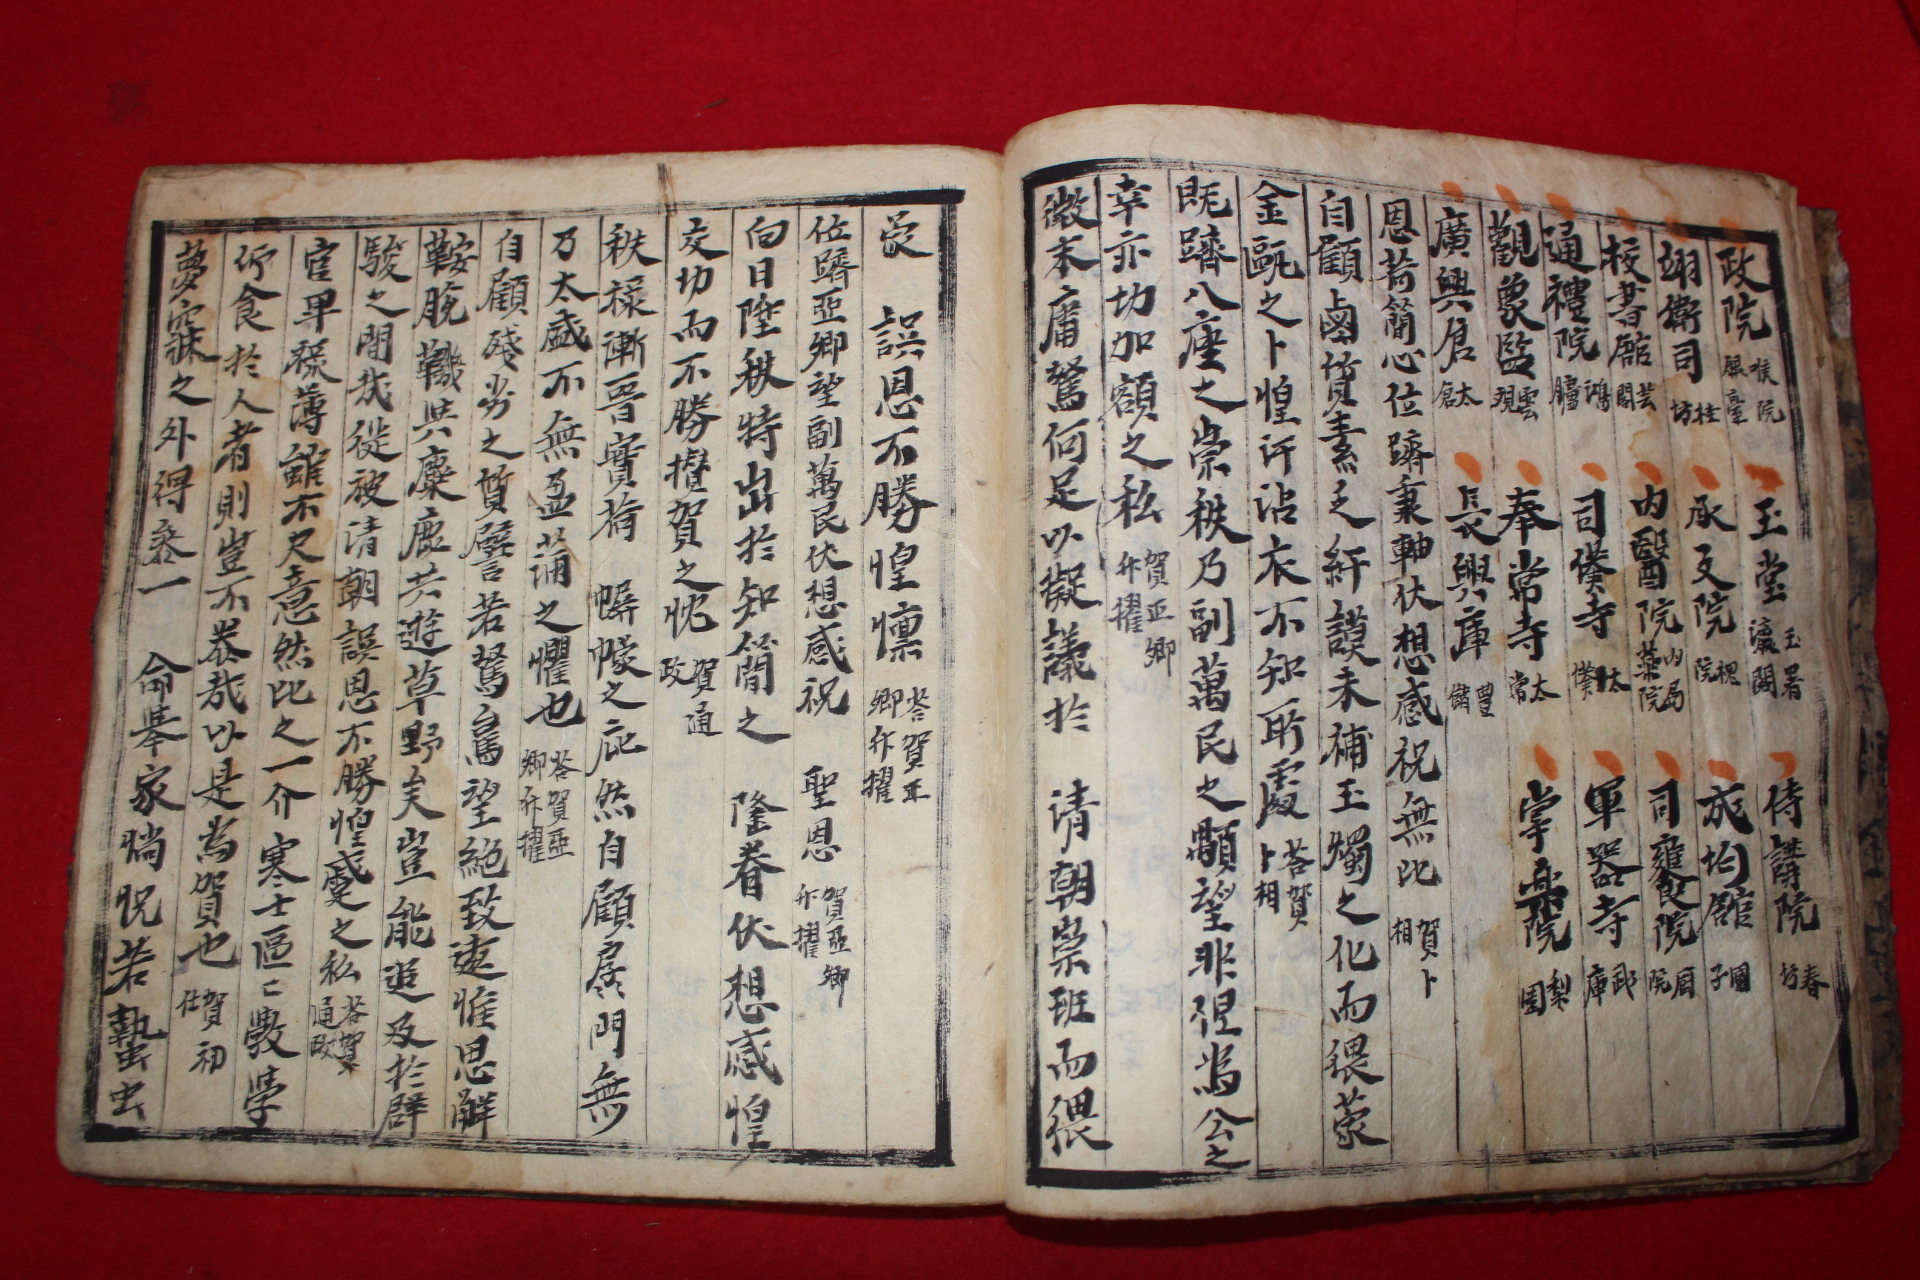 政院 喉院 銀臺 玉堂 玉署 瀛閣 侍講院 春坊
翊衛司 桂坊 承文院 槐院 成均館 國子
校書館 芸閣 內醫院 內局 藥院 司饔院 廚院
通禮院 鴻臚 司僕寺 太僕 軍器寺 武庫
觀象監 雲觀 奉常寺 太常 掌樂院 梨園
廣興倉 太倉 長興庫 豊儲
恩荷簡心位躋秉軸伏想感祝無比 賀卜相
自顧鹵質素乏訏謨未補玉燭之化而猥蒙
金甌之卜惶汗沾衣不知所處 答賀卜相
旣躋八座之崇秩乃副萬民之顒望非但爲公之
幸亦切加額之私 賀正卿升擢
微本庸駑何足以擬議於 淸朝崇班而猥
蒙 誤恩不勝惶懍 答賀正卿升擢
位躋亞卿望副萬民伏想感祝 聖恩 賀亞卿升擢
向日陞秩特出於知簡之 隆眷伏想感惶
交切而不勝攢賀之忱 賀通政
秩祿漸晉實荷 幈幪之庇然自顧 門無
乃太盛不無盈滿之懼也 答賀亞卿升擢
自顧殘劣之質譬若駑駘望絶致遠惟思解
鞍脫羈與麋鹿共遊草野矣豈能追及於群
駿之間哉從被淸朝誤恩不勝惶蹙之私 答賀通政
官卑祿薄雖不尺意然比之一介寒士區〻斅學
佇食於人者則豈不泰哉以是爲賀也 賀初仕
夢寐之外得叅一 命擧家惝怳若蟄虫